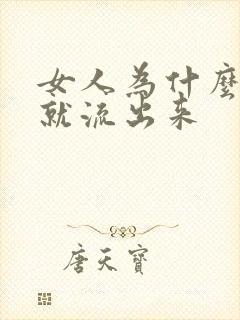 女人為什麼
就流出来
唐天寶